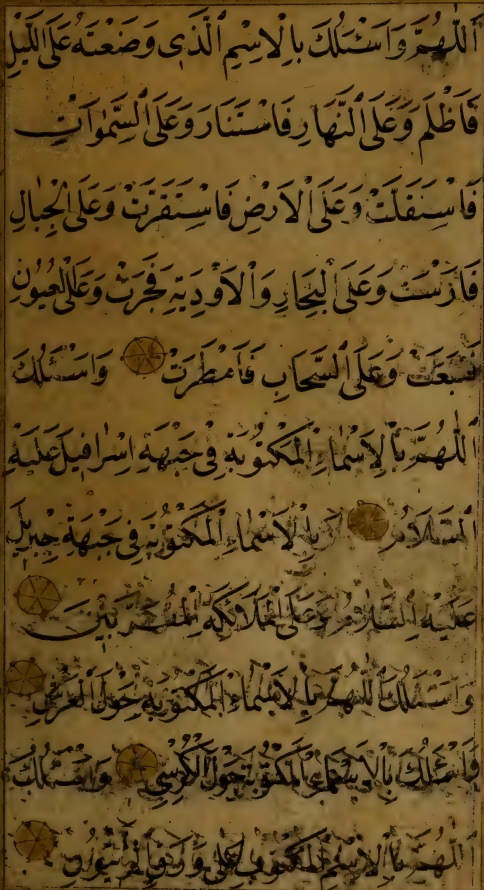 اَللّٰهُمَّ وَاَسْئَلُكَ بِالْاِسْمِ الَّذٖى وَضَعْتَهُ عَلَى اللَّيْلِ
فَاَظْلَمَ وَعَلَى النَّهَارِ فَاسْتَنَارَ وَعَلَى السَّمٰوَاتِ
فَاسْتَقَلَّتْ وَعَلَى الْاَرْضِ فَاسْتَقَرَّتْ وَعَلَى الْجِبَالِ
فَارَسَتْ وَعَلَى الْبِحَارِ وَالْاَوْدِيَةِ فَجَرَتْ وَعَلَى الْعُيُونِ
فَنَبَعَتْ وَعَلَى السَّحَابِ فَاَمْطَرَتْ وَاَسْئَلُكَ
اَللّٰهُمَّ بِالْاَسْمَاءِ الْمَكْتُوبَةِ فِى جَبْهَةِ اِسْرَافِيلَ عَلَيْهِ
السَّلَامُ وَبِالْاَسْمَاءِ الْمَكْتُوبَةِ فِى جَبْهَةِ جِبْرِيلَ
عَلَيْهِ السَّلَامُ وَعَلَى الْمَلَائِكَةِ الْمُقَرَّبِينَ
وَاَسْئَلُكَ اَللّٰهُمَّ بِالْاَسْمَاءِ الْمَكْتُوبَةِ حَوْلَ الْعَرْشِ
وَاَسْئَلُكَ بِالْاَسْمَاءِ الْمَكْتُوبَةِ حَوْلَ الْكُرْسِىِّ وَاَسْئَلُكَ
اَللّٰهُمَّ بِالْاِسْمِ الْمَكْتُوبِ عَلٰى وَرَقِ الزَّيْتُونِ